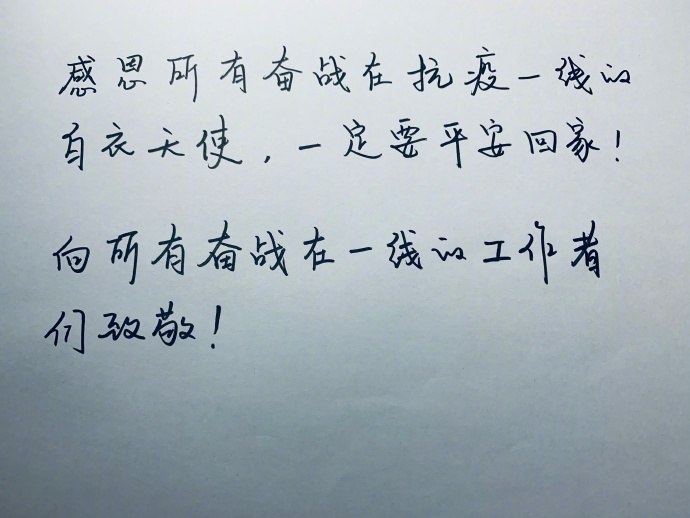 感恩所有奋战在抗疫一线的
白衣天使，一定要平安回家！
向所有奋战在一线的工作者
们致敬！